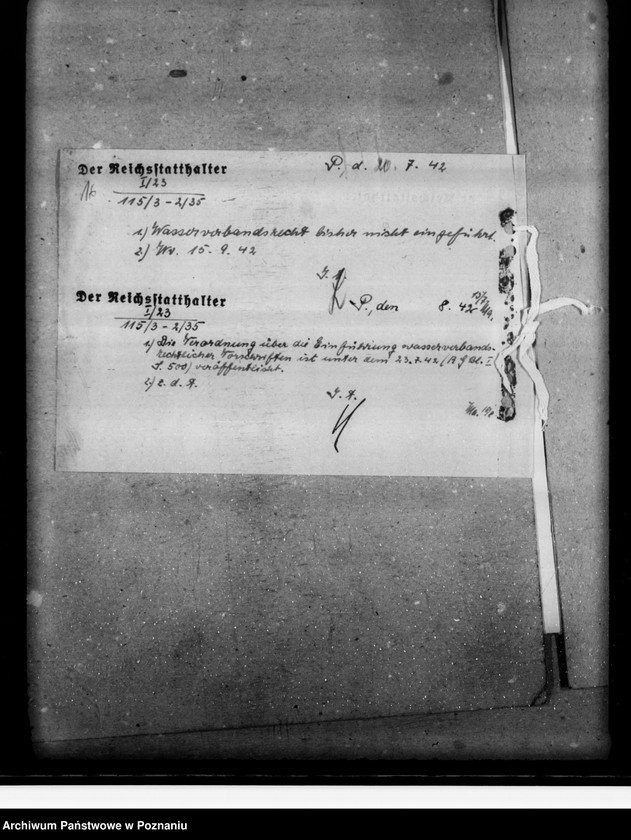 Der Reichsstatthalter
I/23
115/3 - 2/35
P., d. 20. 7. 42
1) Wasserverbandsrecht bisher nicht eingeführt.
2) Wv. 15. 9. 42
Der Reichsstatthalter
I/23
115/3 - 2/35
P., den 8. 42
1) Die Verordnung über die Einführung wasserverbands-
rechtlicher Vorschriften ist unter dem 23.7.42 (R.G.Bl. I
S. 500) veröffentlicht.
2) z. d. A.
I. A.
Archiwum Państwowe w Poznaniu